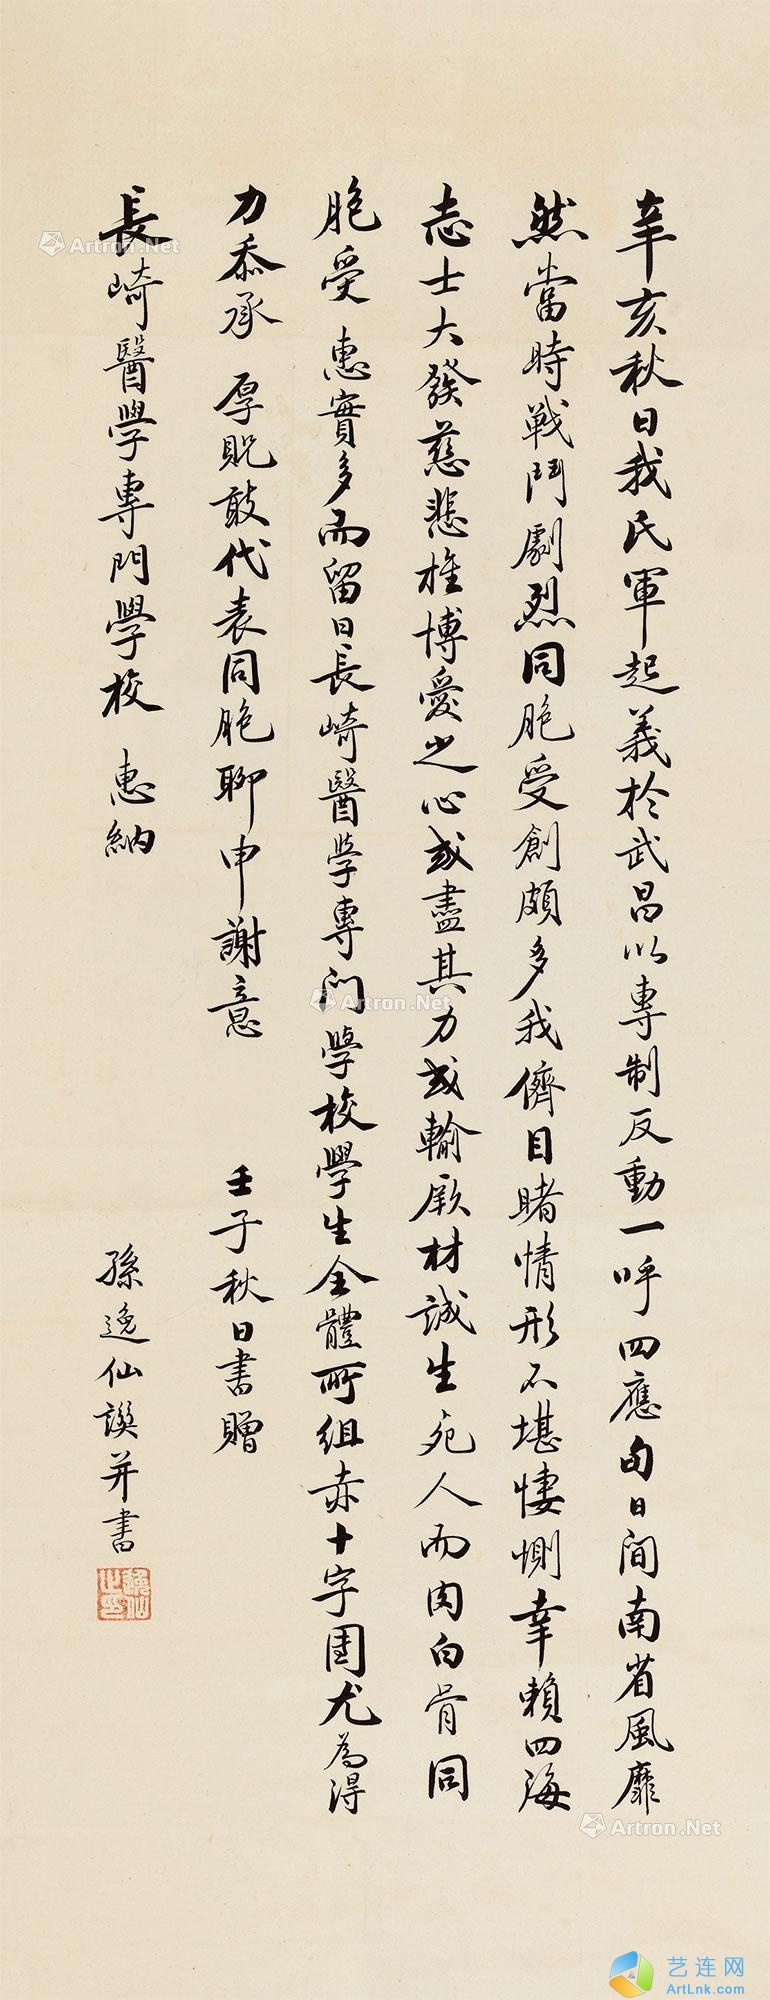 辛亥秋日我民軍起義於武昌以專制反動一呼四應旬日間南省風靡
然當時戰鬥劇烈同胞受創頗多我儕目睹情形不堪悽惻幸賴四海
志士大發慈悲推博愛之心或盡其力或輸厥材誠生死人而肉白骨同
胞受 惠實多而留日長崎醫學專門學校學生全體所組赤十字團尤為得
力忝承 厚貺敢代表同胞聊申謝意 壬子秋日書贈
長崎醫學專門學校 惠納
孫逸仙譔并書
Artron.Net
Artron.Net
Artron.Net
艺连网
ArtLnk.com